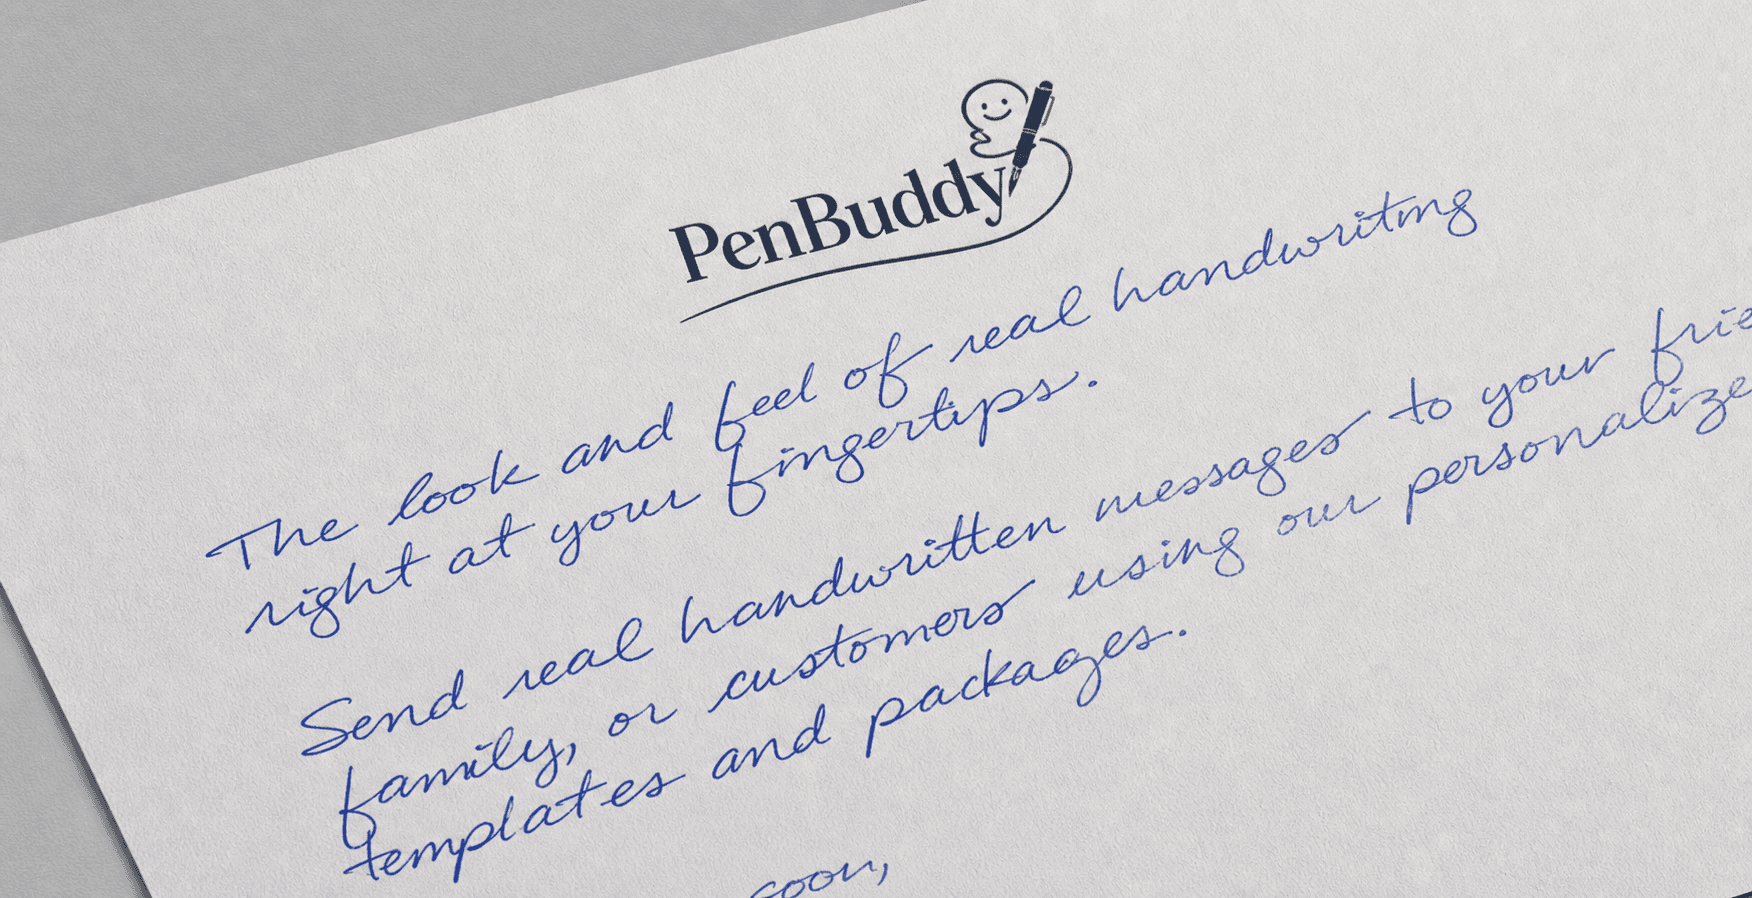 PenBuddy
The look and feel of real handwriting
right at your fingertips.
Send real handwritten messages to your
family, or customers using our
templates and packages.
soon,